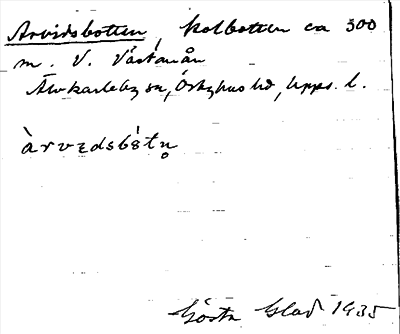 Arvidsbotten, kolbotten ca 300
m. V. Västanån
Älvkarleby sn, Örbyhus hd, Upps. l.
àrvedsbòtn̥
Gösta Glad 1935